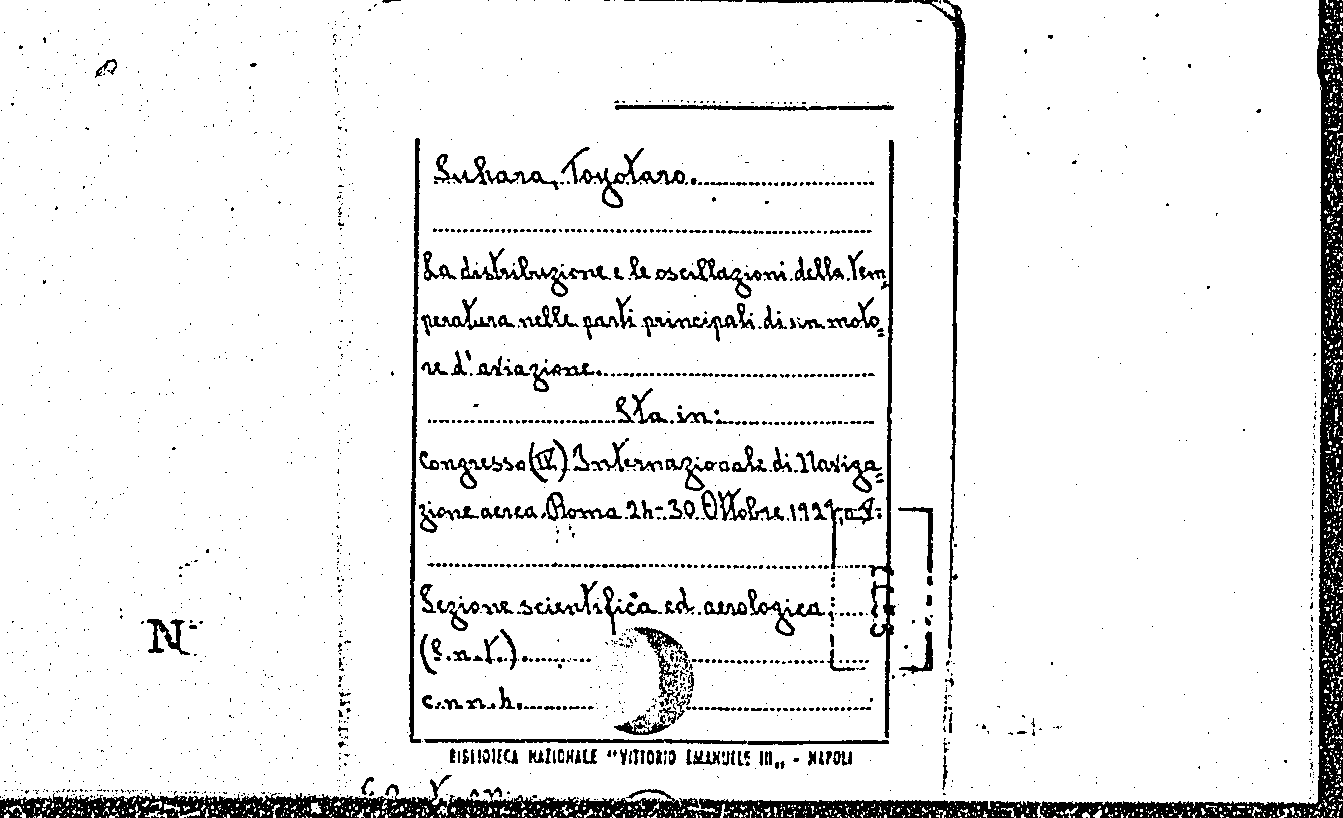 Suhara, Toyotaro.
La distribuzione e le oscillazioni della tem=
peratura nelle parti principali di un moto=
re d'aviazione.
Sta in:
Congresso (IV) Internazionale di Naviga=
zione aerea Roma 24-30 Ottobre 1927
Sezione scientifica ed aerologica.
(S.n.t.).
c.n.n.h.
BIBLIOTECA NAZIONALE "VITTORIO EMANUELE III„ - NAPOLI
N